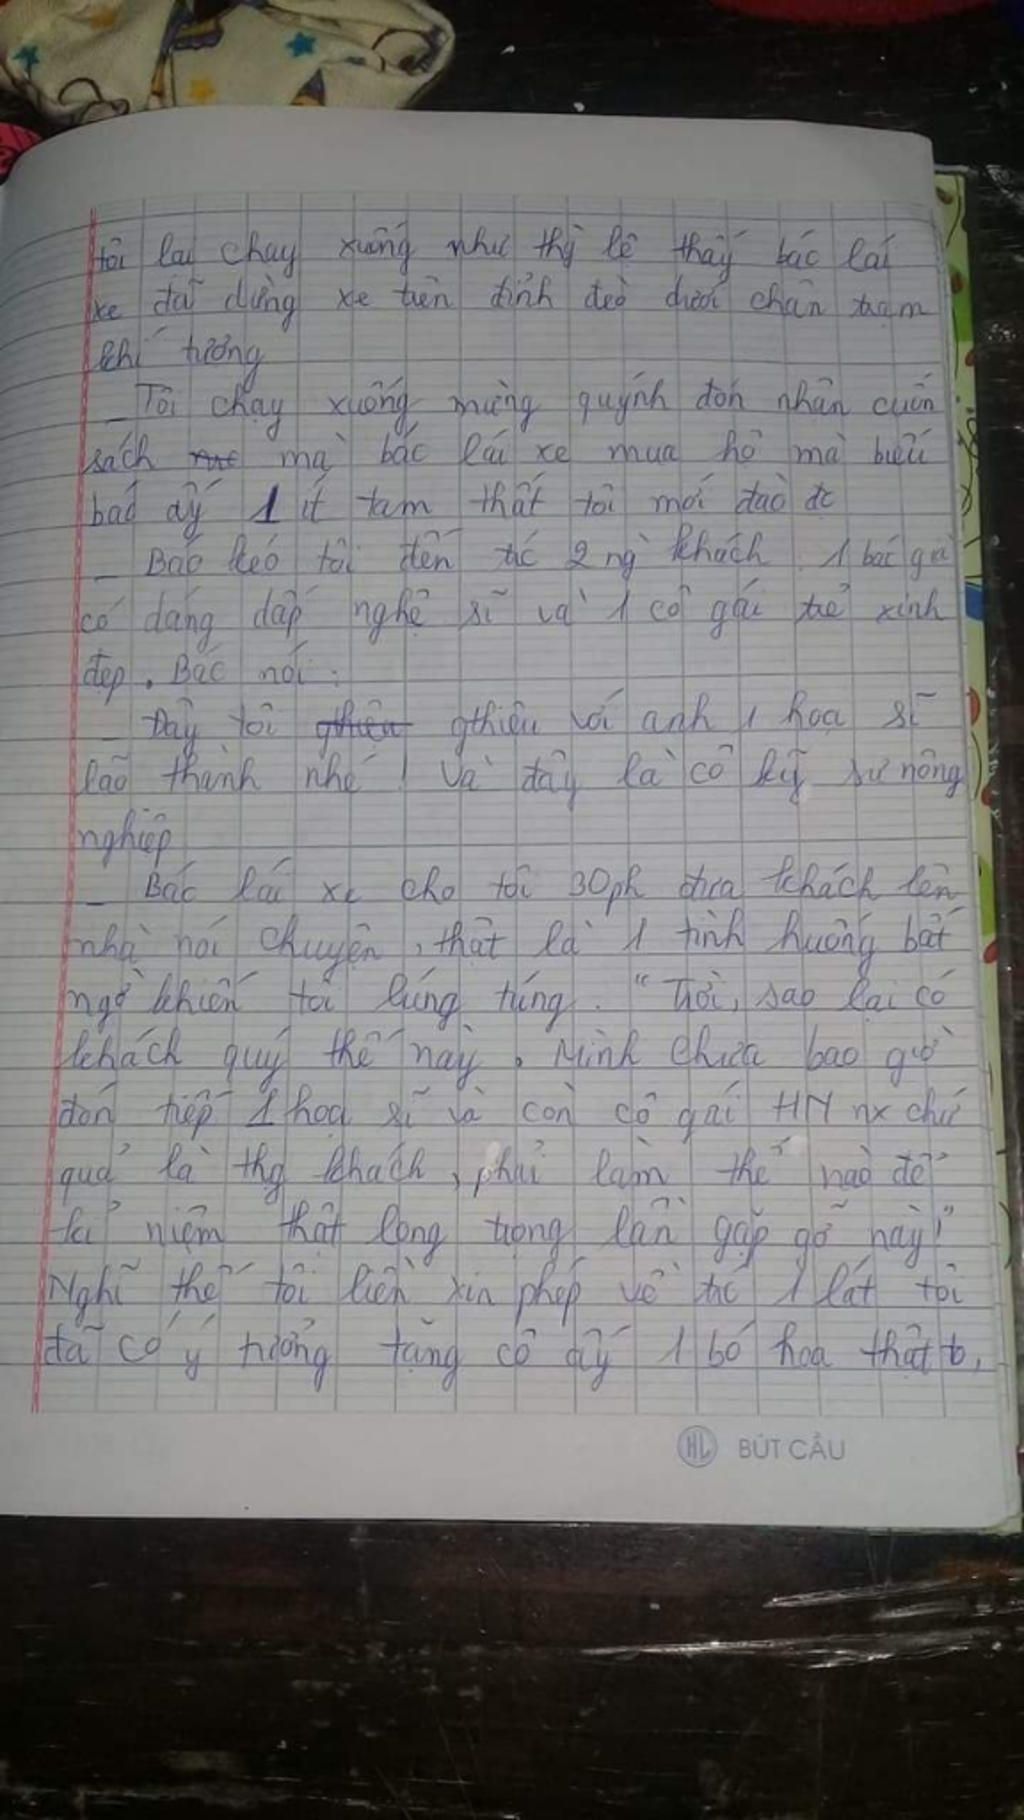 tôi lại chạy xuống như thg lệ thấy bác lái
xe đã dừng xe trên đỉnh đèo dưới chân trạm
khí tượng
_ Tôi chạy xuống mừng quýnh đón nhận cuốn
sách mà bác lái xe mua hộ mà biếu
bác ấy 1 ít tam thất tôi mới đào đc
_ Bác kéo tôi đến trc 2 ng` khách. 1 bác già
có dáng dấp nghệ sĩ và 1 cô gái trẻ xinh
đẹp. Bác nói:
_ Đây tôi gthiệu với anh 1 họa sĩ
lão thành nhé! Và đây là cô kỹ sư nông
nghiệp
_ Bác lái xe cho tôi 30ph đưa khách lên
nhà nói chuyện, thật là 1 tình huống bất
ngờ khiến tôi lúng túng. "Trời, sao lại có
khách quý thế này. Mình chưa bao giờ
đón tiếp 1 họa sĩ và còn cô gái HN nx chứ
quả là thg khách, phải làm thế nào để
kỉ niệm thật long trọng lần gặp gỡ này!"
Nghĩ thế tôi liền xin phép về trc 1 lát tôi
đã có ý tưởng tặng cô ấy 1 bó hoa thật to,
HL BÚT CẦU